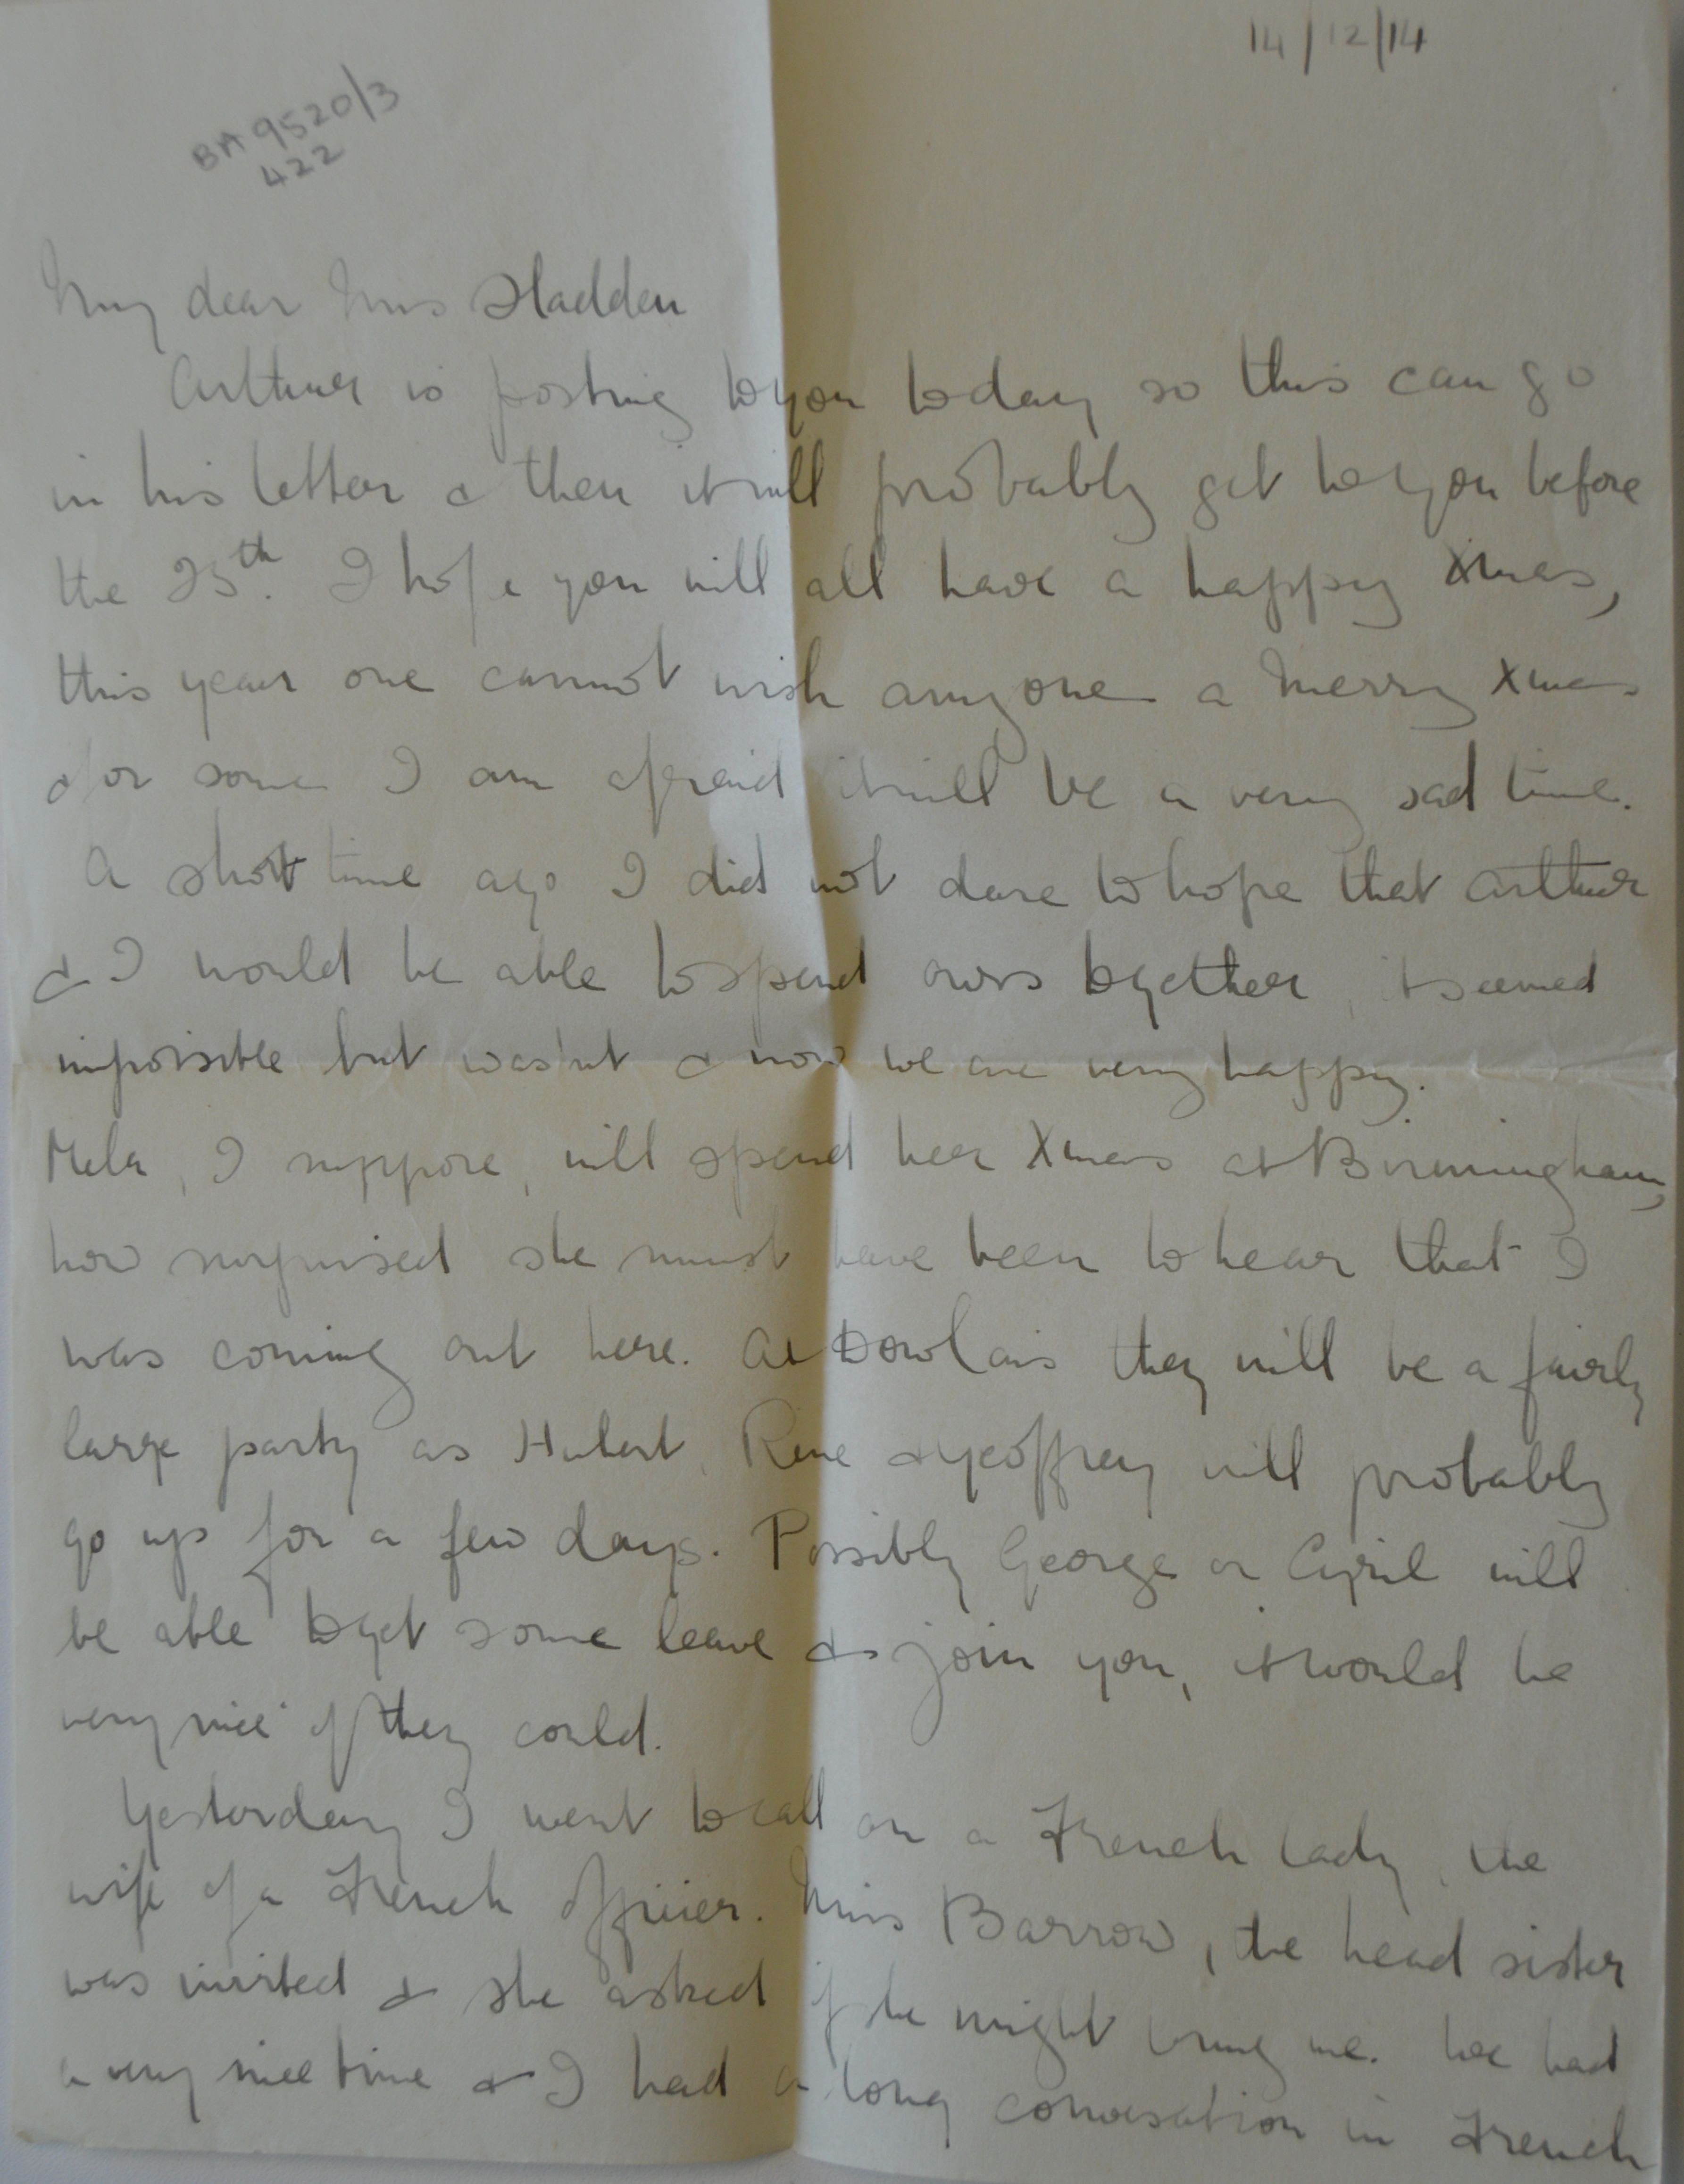 14/12/14
BA 9520/3
422
My dear Mrs Sladden
Arthur is posting to you today so this can go
in his letter & then it will probably get to you before
the 25th. I hope you will all have a happy Xmas,
this year one cannot wish anyone a merry Xmas
& for some I am afraid it will be a very sad time.
A short time ago I did not dare to hope that Arthur
& I would be able to spend ours together, it seemed
impossible but was'nt & now we are very happy.
Mela, I suppose, will spend her Xmas at Birmingham,
how surprised she must have been to hear that I
was coming out here. At Dowlais they will be a fairly
large party as Hubert, Rene & Geoffrey will probably
go up for a few days. Possibly George or Cyril will
be able to get some leave & join you, it would be
very nice if they could.
Yesterday I went to call on a French lady, the
wife of a French officer. Miss Barrow, the head sister
was invited & she asked if he might bring me. We had
a very nice time & I had a long conversation in French